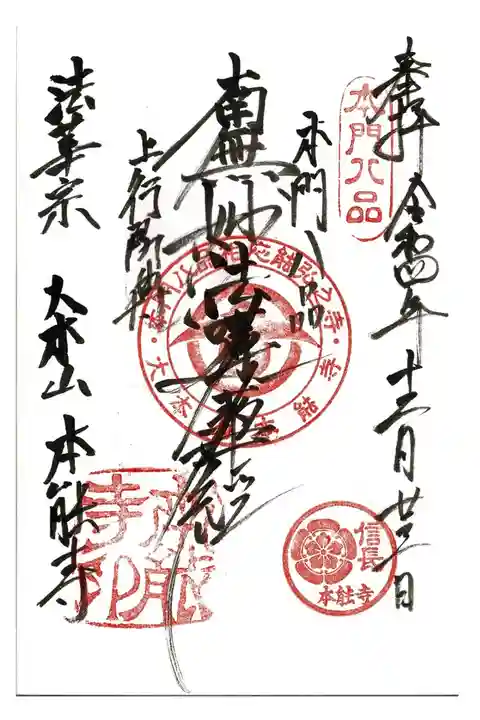 奉拝 令和四年 十二月廿三日
本門八品
本門八品
南無妙法蓮華経
上行所傳
法華宗 大本山 本能寺
信長
本能寺
本能寺印